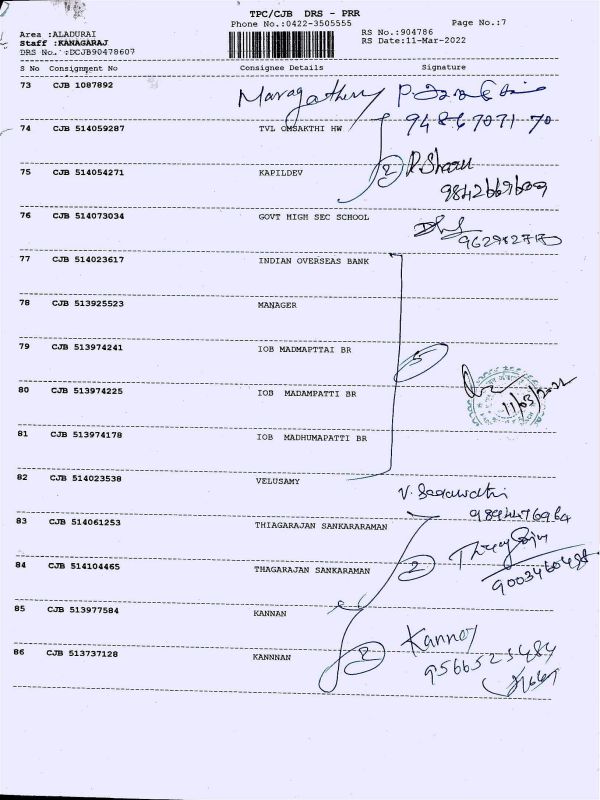 TPC/CJB DRS - PRR
Phone No.:0422-3505555
Page No.:7
Area :ALADURAI
Staff :KANAGARAJ
DRS No. :DCJB90478607
RS No.:904786
RS Date:11-Mar-2022
S No Consignment No Consignee Details Signature
73 CJB 1087892
94867071 70
74 CJB 514059287 TVL OMSAKTHI HW
75 CJB 514054271 KAPILDEV 2
76 CJB 514073034 GOVT HIGH SEC SCHOOL
77 CJB 514023617 INDIAN OVERSEAS BANK
78 CJB 513925523 MANAGER
79 CJB 513974241 IOB MADMAPTTAI BR 5
80 CJB 513974225 IOB MADAMPATTI BR
11/03/2022
81 CJB 513974178 IOB MADHUMAPATTI BR
82 CJB 514023538 VELUSAMY
83 CJB 514061253 THIAGARAJAN SANKARARAMAN
84 CJB 514104465 THAGARAJAN SANKARAMAN 2
85 CJB 513977584 KANNAN
86 CJB 513737128 KANNNAN 2